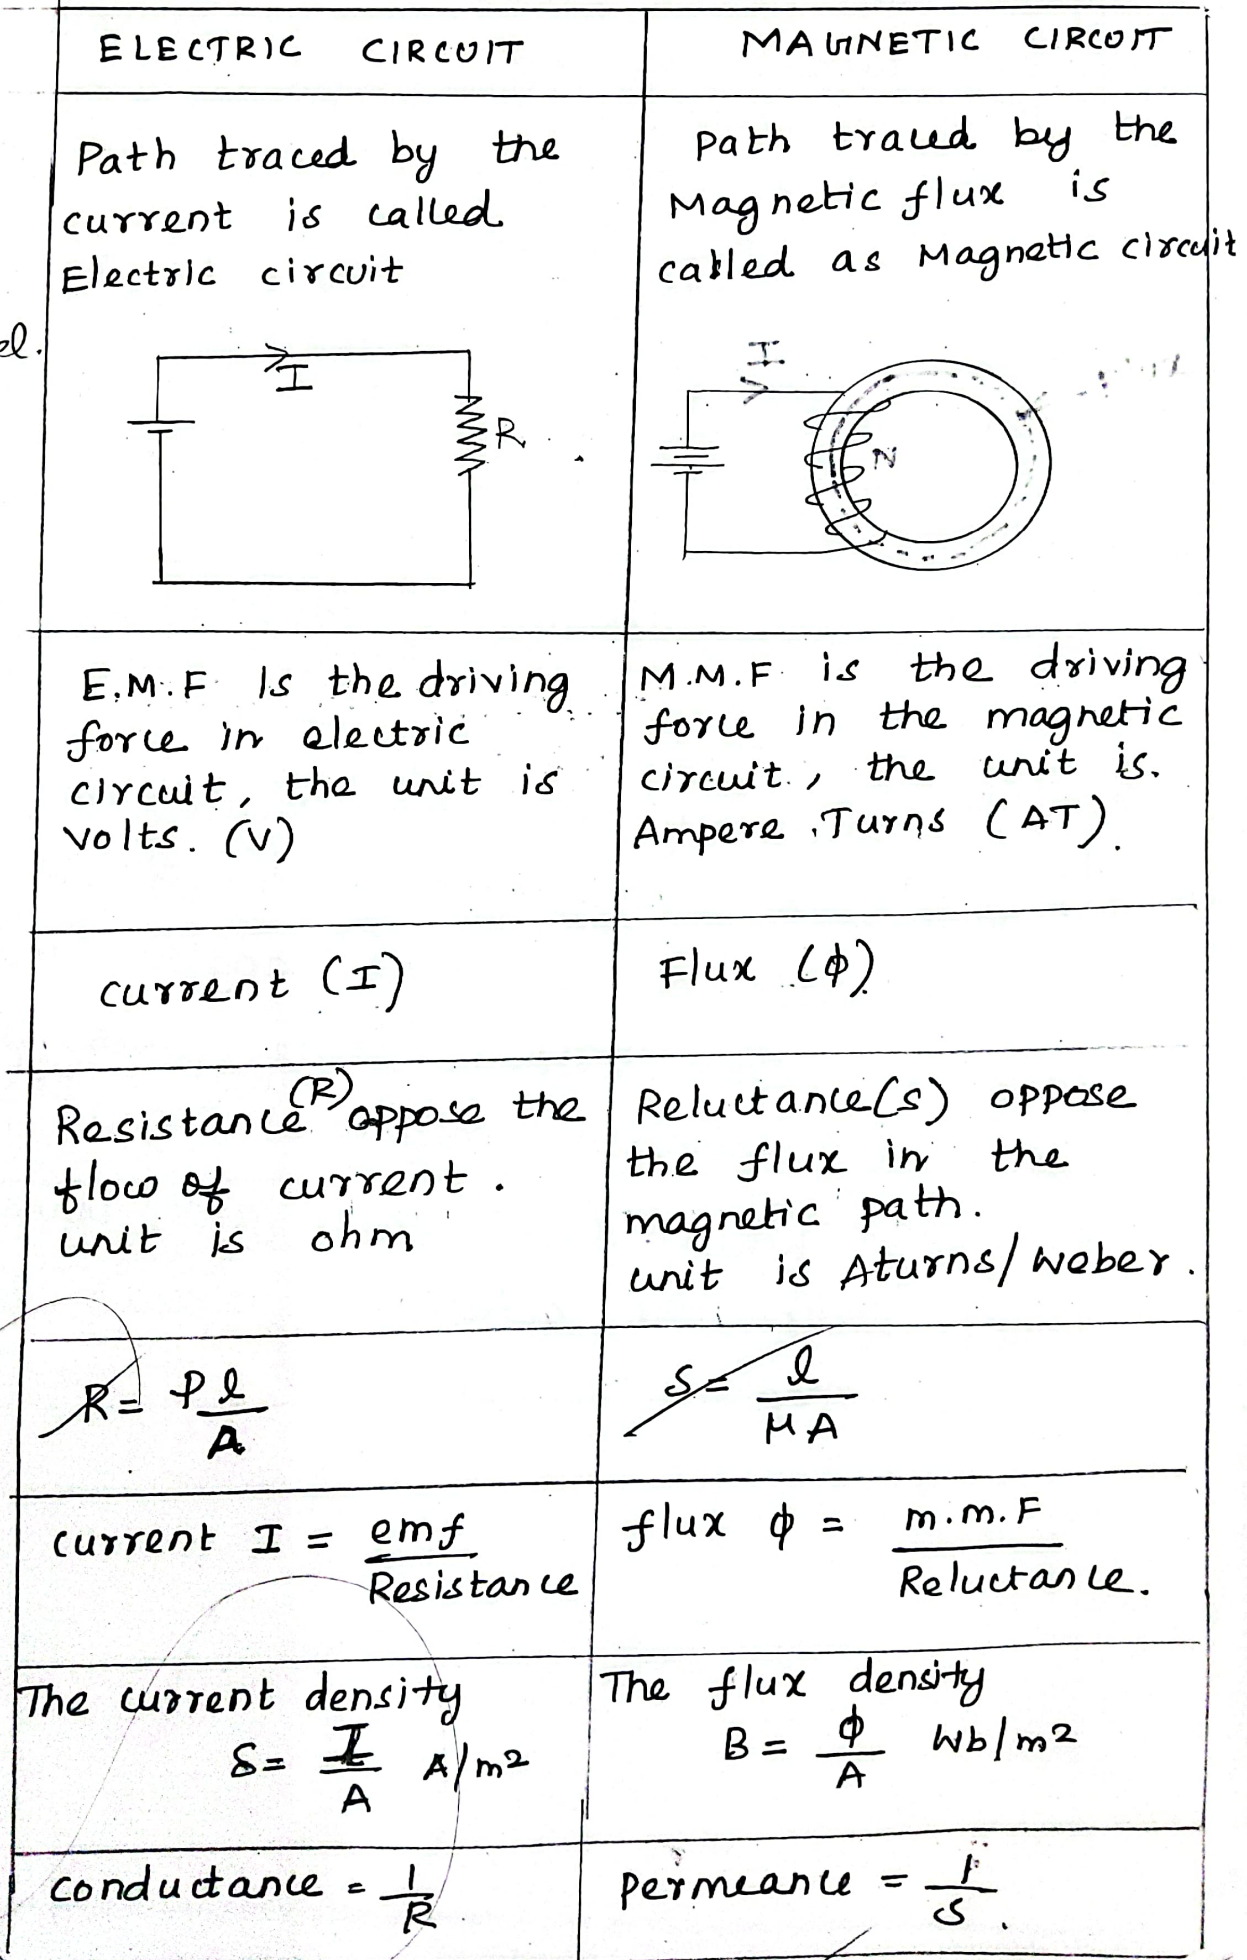 ELECTRIC CIRCUIT
MAGNETIC CIRCUIT
Path traced by the
current is called
Electric circuit
path traced by the
Magnetic flux is
called as Magnetic circuit
el.
I
R
I
N
E.M.F Is the driving
force in electric
circuit, the unit is
volts. (V)
M.M.F is the driving
force in the magnetic
circuit, the unit is.
Ampere Turns (AT).
current (I)
Flux (ϕ)
Resistance (R) oppose the
flow of current.
unit is ohm
Reluctance(s) oppose
the flux in the
magnetic path.
unit is Aturns/weber.
R = ρl/A
S = l/μA
current I = emf/Resistance
flux ϕ = m.m.F/Reluctance.
The current density
δ = I/A A/m2
The flux density
B = ϕ/A Wb/m2
conductance = 1/R
permeance = 1/S.